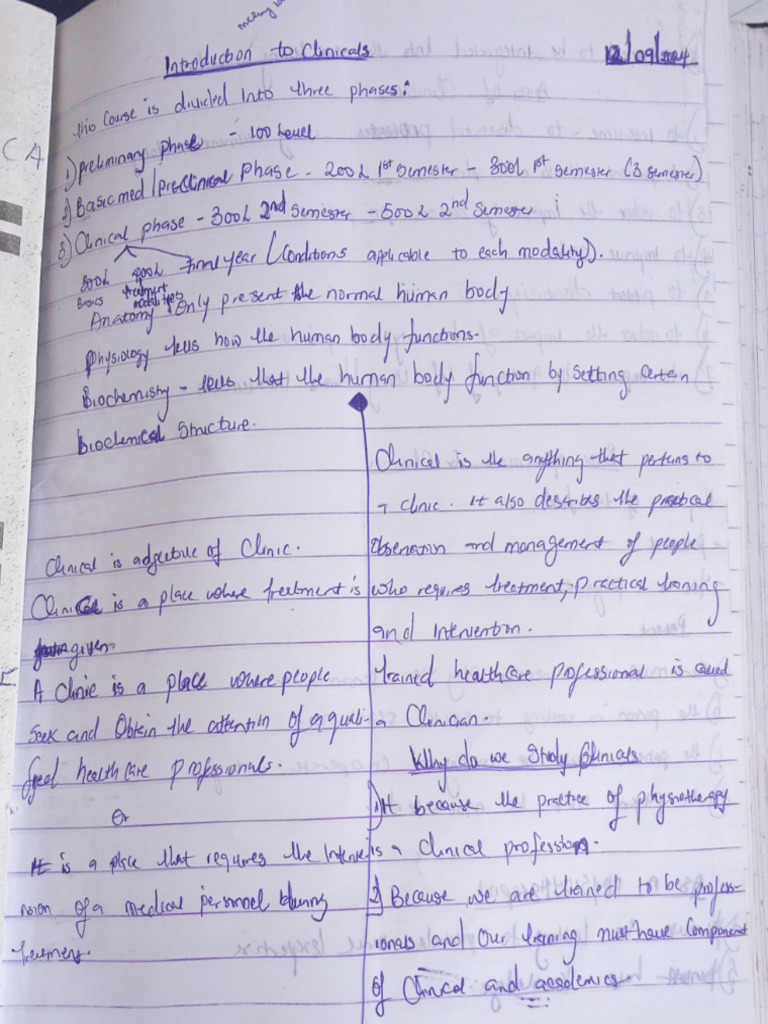 Introduction to Clinicals
12/09/2024
This Course is divided Into three phases:
CA
1) preliminary phase - 100 Level
2) Basic med/preclinical Phase - 200L 1st Semester - 300L 1st Semester (3 semester)
3) Clinical phase - 300L 2nd Semester - 500L 2nd Semester
300L 400L Final year (Conditions applicable to each modality).
Basics treatment modalities
Anatomy - Only present the normal human body
Physiology tells how the human body functions-
Biochemistry - tells that the human body function by setting certain
Biochemical Structure.
Clinical is adjective of Clinic.
Clinic is a place where treatment is
given.
A Clinic is a place where people
seek and Obtain the attention of a quali-
fied healthcare professionals.
Or
It is a place that requires the Interve-
nsion of a medical personnel during
treatment.
Clinical is the anything that pertains to
a clinic. It also describes the practical
Observation and management of people
who requires treatment, practical training
and Intervention.
Trained healthcare professional is called
a Clinician.
Why do we Study Clinicals
1) It because the practice of physiotherapy
is a clinical profession.
2) Because we are trained to be profess-
ionals and Our training must have Component
of Clinical and academics